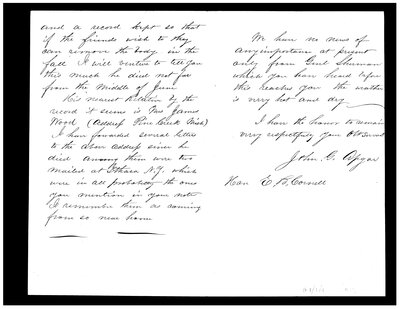 and a record kept so that
if the friends wish to they
can remove the body in the
fall I will venture to tell you
this much he died not far
from the middle of June
His nearest relation by the
record it seems is Mrs James
Wood (Address Pine Creek Mich)
I have forwarded several letters
to the above address since he
died among them were two
mailed at Ithaca N.Y. which
were in all probability the ones
you mention in your note
I remember them as coming
from so near home
We have no news of
any importance at present
only from Genl Sherman
which you have heard before
this reaches you the weather
is very hot and dry
I have the honor to remain
very respectfully your Obt Servant
John C. Apgar
Hon E. B. Cornell